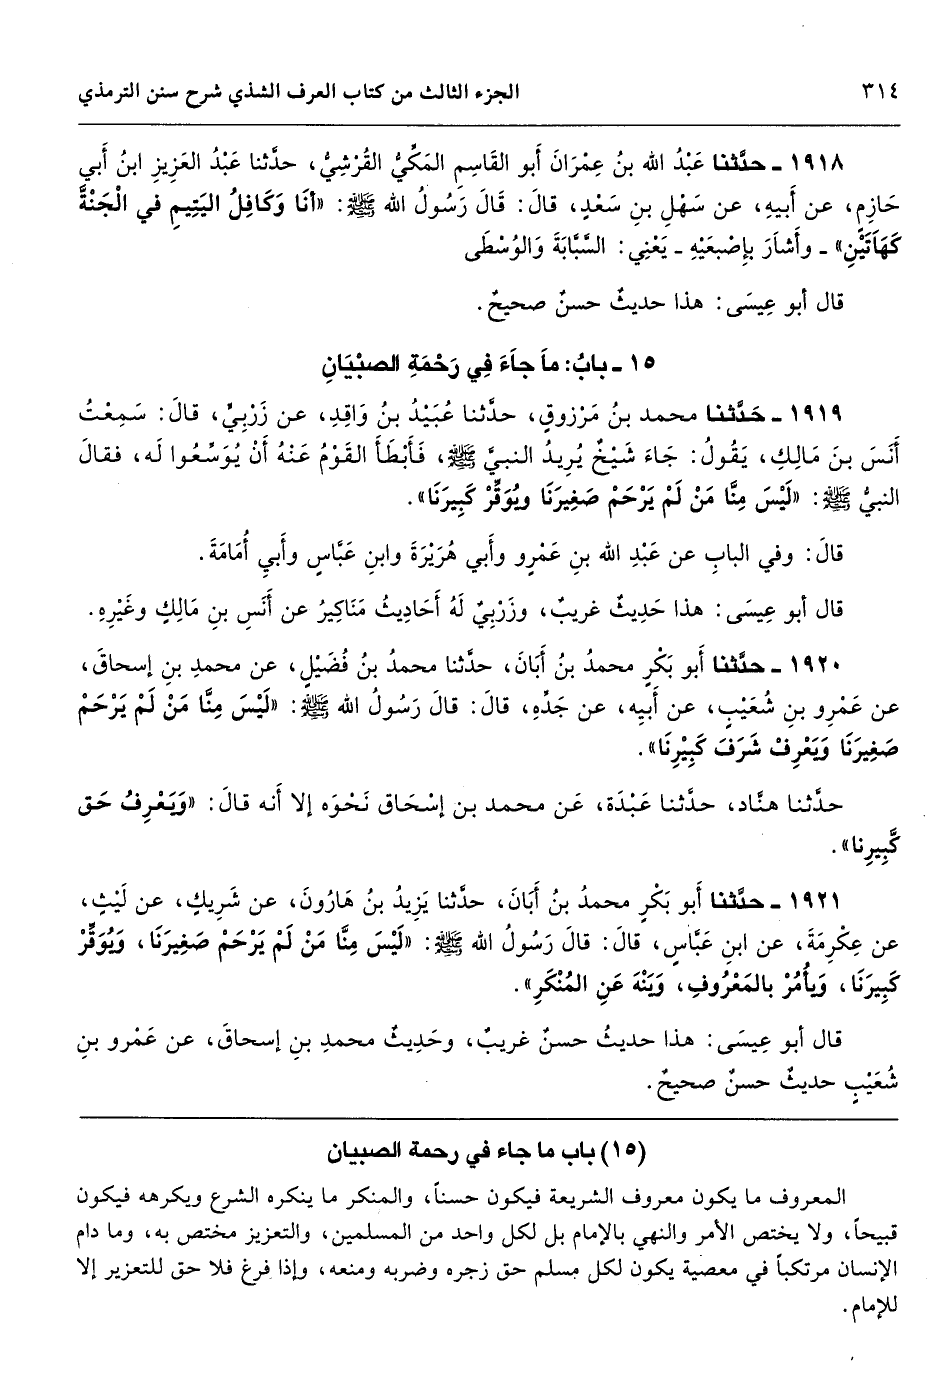 ٣١٤ الجزء الثالث من كتاب العرف الشذي شرح سنن الترمذي
١٩١٨ ـ حدَّثنا عَبْدُ الله بنُ عِمْرَانَ أبو القَاسِمِ المَكِّيُّ القُرَشِيُّ، حدَّثنا عَبْدُ العَزِيزِ ابنُ أَبي
حَازِمٍ، عن أَبيهِ، عن سَهْلِ بنِ سَعْدٍ، قالَ: قَالَ رَسُولُ الله ﷺ: «أنَا وَكَافِلُ اليَتِيمِ في الْجَنَّةِ
كَهَاتَيْنِ» ـ وأَشَارَ بإصْبَعَيْهِ ـ يَعْنِي: السَّبَّابَةَ وَالوُسْطَى
قال أبو عِيسَى: هذا حديثٌ حسنٌ صحيحٌ.
١٥ ـ بابُ: مَا جَاءَ فِي رَحْمَةِ الصبْيَانِ
١٩١٩ ـ حَدَّثنا محمد بنُ مَرْزوقٍ، حدَّثنا عُبَيْدُ بنُ وَاقِدٍ، عن زَرْبِيٍّ، قالَ: سَمِعْتُ
أَنَسَ بنَ مَالِكٍ، يَقُولُ: جَاءَ شَيْخٌ يُرِيدُ النبيَّ ﷺ، فَأَبْطَأَ القَوْمُ عَنْهُ أنْ يُوَسِّعُوا لَه، فقالَ
النبيُّ ﷺ: «لَيْسَ مِنَّا مَنْ لَمْ يَرْحَم صَغِيرَنَا ويُوَقِّرْ كَبِيرَنَا».
قالَ: وفي البابِ عن عَبْدِ الله بنِ عَمْرٍو وأَبي هُرَيْرَةَ وابنِ عَبَّاسٍ وأَبي أُمَامَةَ.
قال أبو عِيسَى: هذا حَدِيثٌ غريبٌ، وزَرْبِيٌّ لَهُ أحَادِيثُ مَنَاكِيرُ عن أَنَسِ بنِ مَالِكٍ وغَيْرِهِ.
١٩٢٠ ـ حدَّثنا أَبو بَكْرٍ محمدُ بنُ أَبَانَ، حدَّثنا محمدُ بنُ فُضَيْلٍ، عن محمدِ بنِ إسحاقَ،
عن عَمْرِو بنِ شُعَيْبٍ، عن أَبِيهِ، عن جَدِّهِ، قالَ: قالَ رَسُولُ الله ﷺ: «لَيْسَ مِنَّا مَنْ لَمْ يَرْحَمْ
صَغِيرَنَا وَيَعْرِفْ شَرَفَ كَبِيْرِنَا».
حدَّثنا هنَّاد، حدَّثنا عَبْدَة، عَن محمد بن إسْحَاق نَحْوَه إلا أنه قالَ: «وَيَعْرِفُ حَق
كَبِيرِنا».
١٩٢١ ـ حدَّثنا أَبو بَكْرٍ محمدُ بنُ أَبَانَ، حدَّثنا يَزِيدُ بنُ هَارُونَ، عن شَرِيكٍ، عن لَيْثٍ،
عن عِكْرِمَةَ، عن ابنِ عَبَّاسٍ، قالَ: قالَ رَسُولُ الله ﷺ: «لَيْسَ مِنَّا مَنْ لَمْ يَرْحَم صَغِيرَنَا، وَيُوَقِّرْ
كَبِيرَنَا، وَيأْمُرْ بالمَعْرُوفِ، وَيَنْهَ عَنِ المُنْكَرِ».
قال أبو عِيسَى: هذا حديثُ حسنٌ غريبٌ، وحَدِيثُ محمدِ بنِ إسحاقَ، عن عَمْرِو بنِ
شُعَيْبٍ حديثٌ حسنٌ صحيحٌ.
(١٥) باب ما جاء في رحمة الصبيان
المعروف ما يكون معروف الشريعة فيكون حسناً، والمنكر ما ينكره الشرع ويكرهه فيكون
قبيحاً، ولا يختص الأمر والنهي بالإمام بل لكل واحد من المسلمين، والتعزيز مختص به، وما دام
الإنسان مرتكباً في معصية يكون لكل مسلم حق زجره وضربه ومنعه، وإذا فرغ فلا حق للتعزير إلا
للإمام.